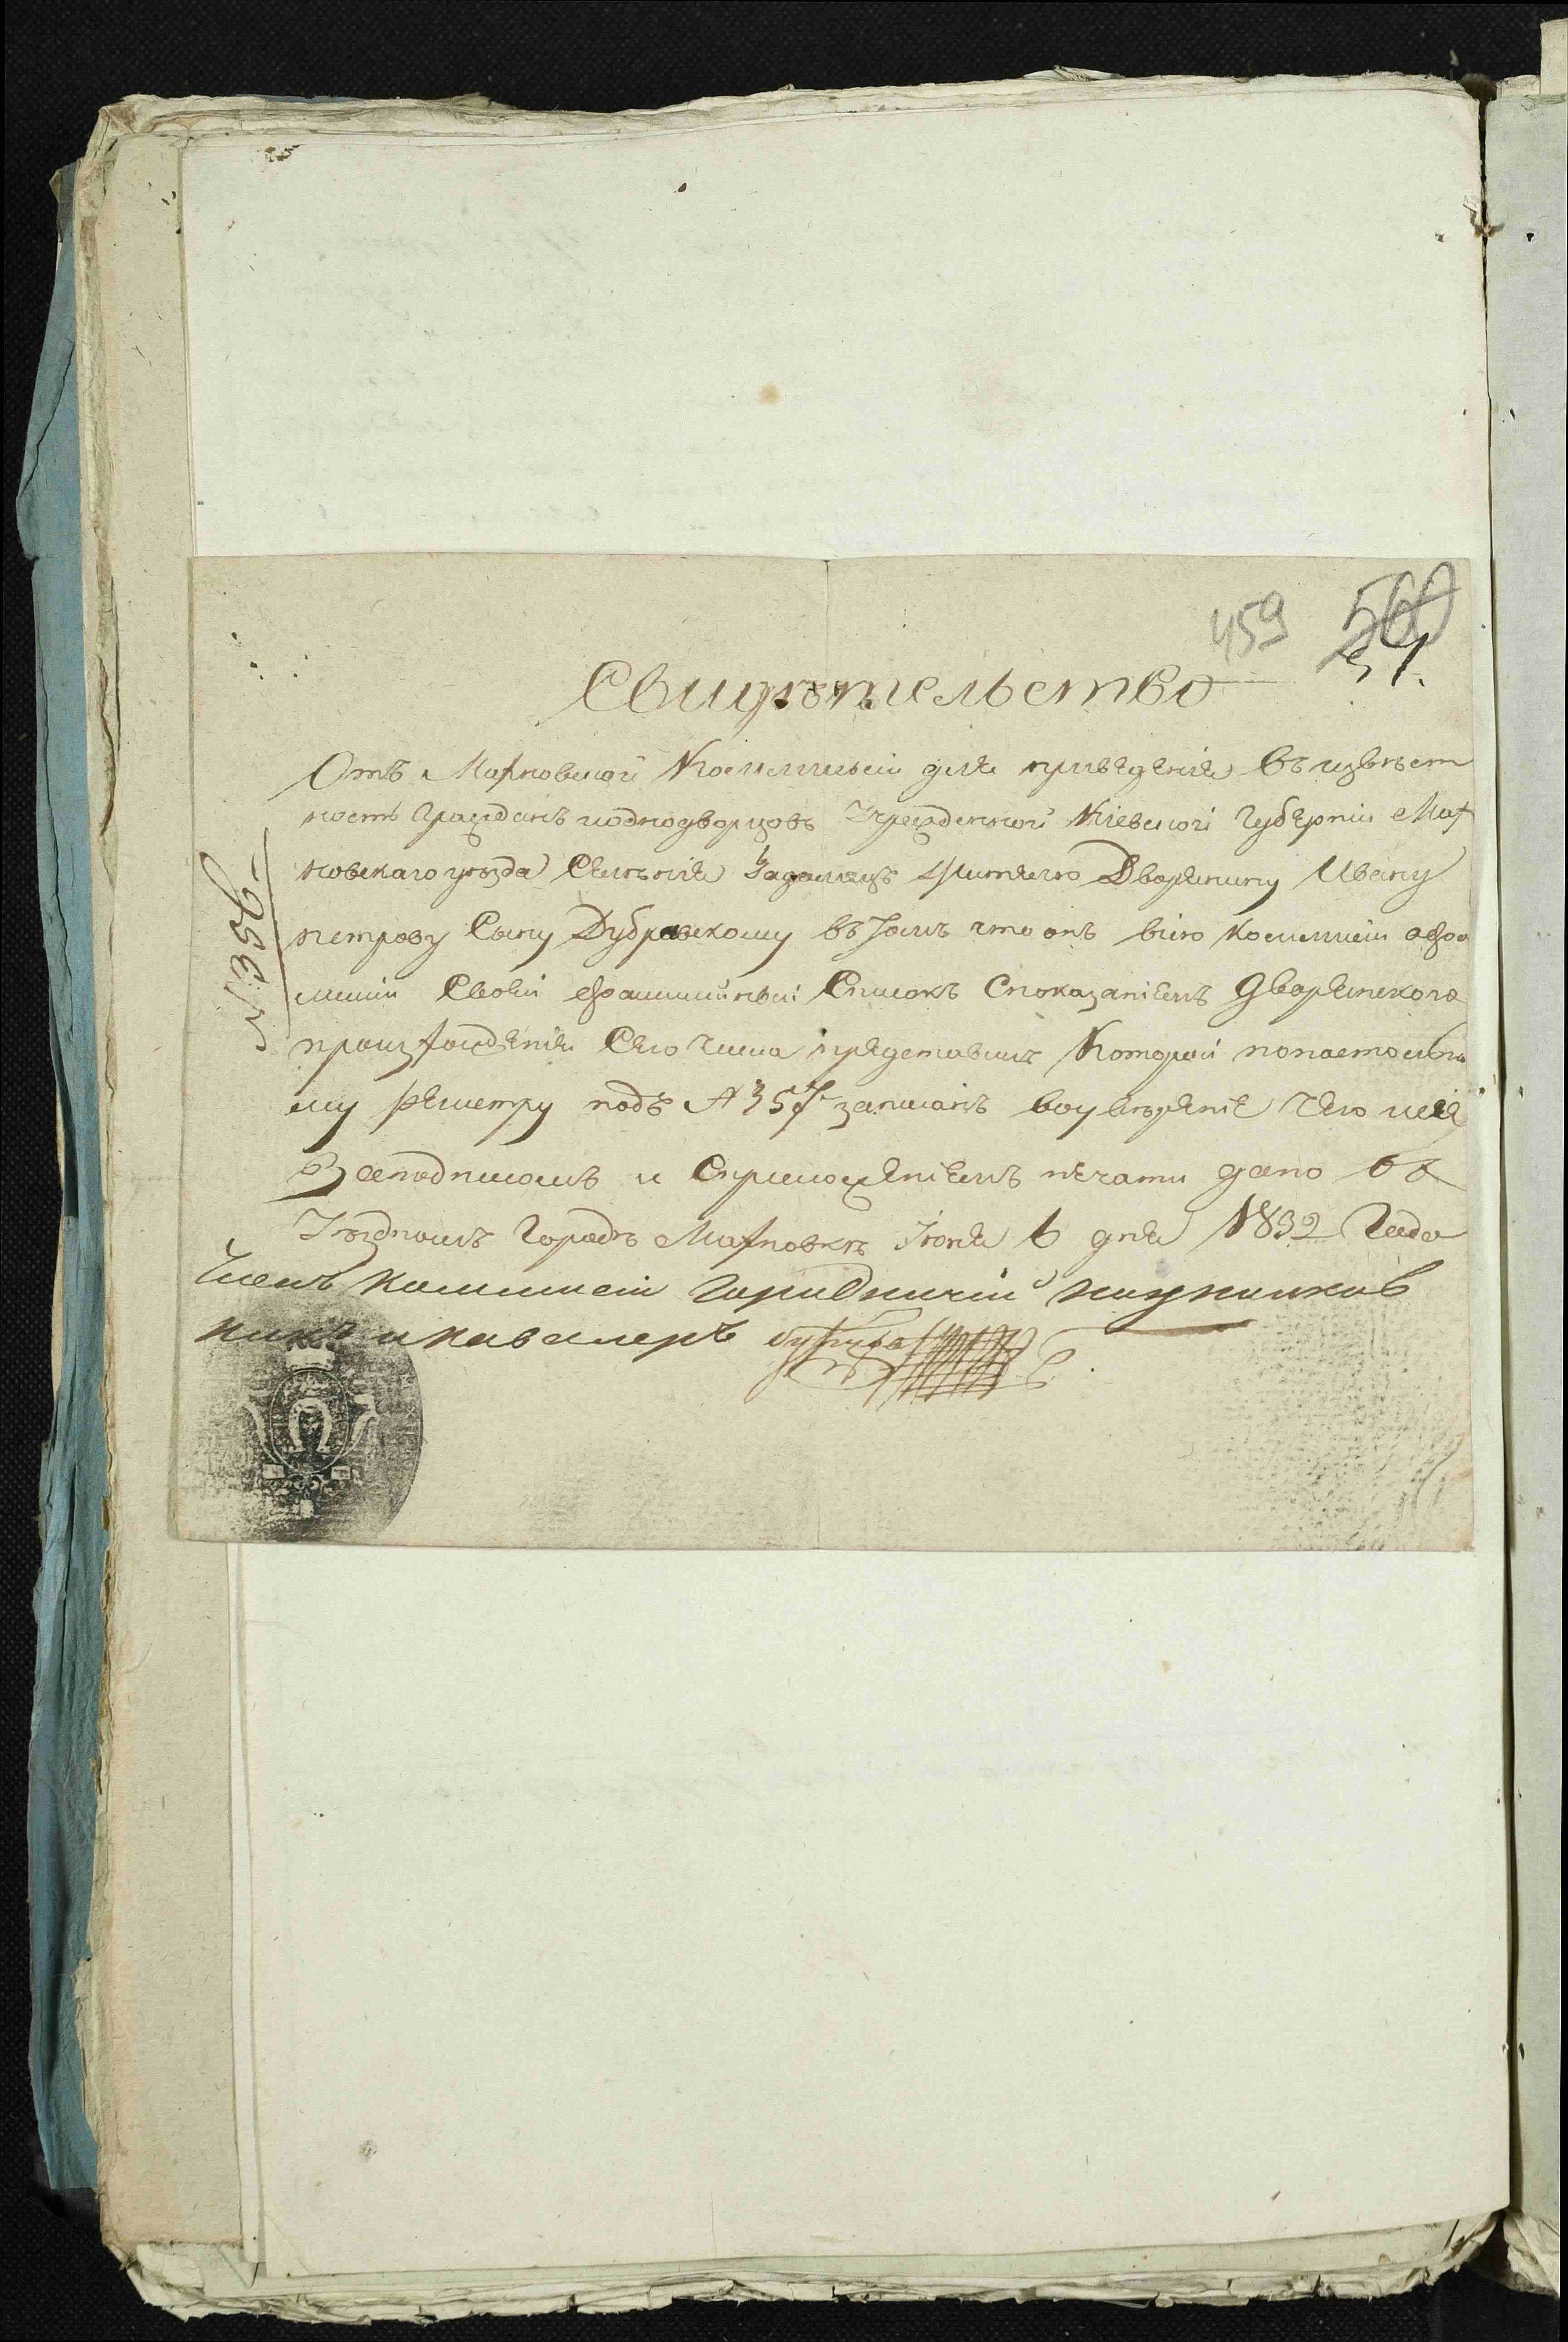 459 560
51.
Свидѣтельство
Отъ Махновской Коммиссіи для приведенія въ извѣст
ность гражданъ иоднодворцовъ Учрежденной Кіевской Губерніи Мах
новскаго уѣзда Селѣнія жителю Дворянину Ивану
петрову Сыну Дубровскому въ томъ что онъ всію Коммиссіи офа
миліи Своей фамилійный Списокъ Споказаніемъ Дворянского
произхожденія Сего числа представилъ Которой понастольно
му реистру подъ № 357 записанъ воувѣреніе чего
Заподписомъ и Сприложеніемъ печати дано въ
Уѣздномъ Городѣ Махновкѣ Іюня 6 дня 1832 Года
Членъ Коммиссіи Городничій подполков
никъ и кавалеръ
№ 356